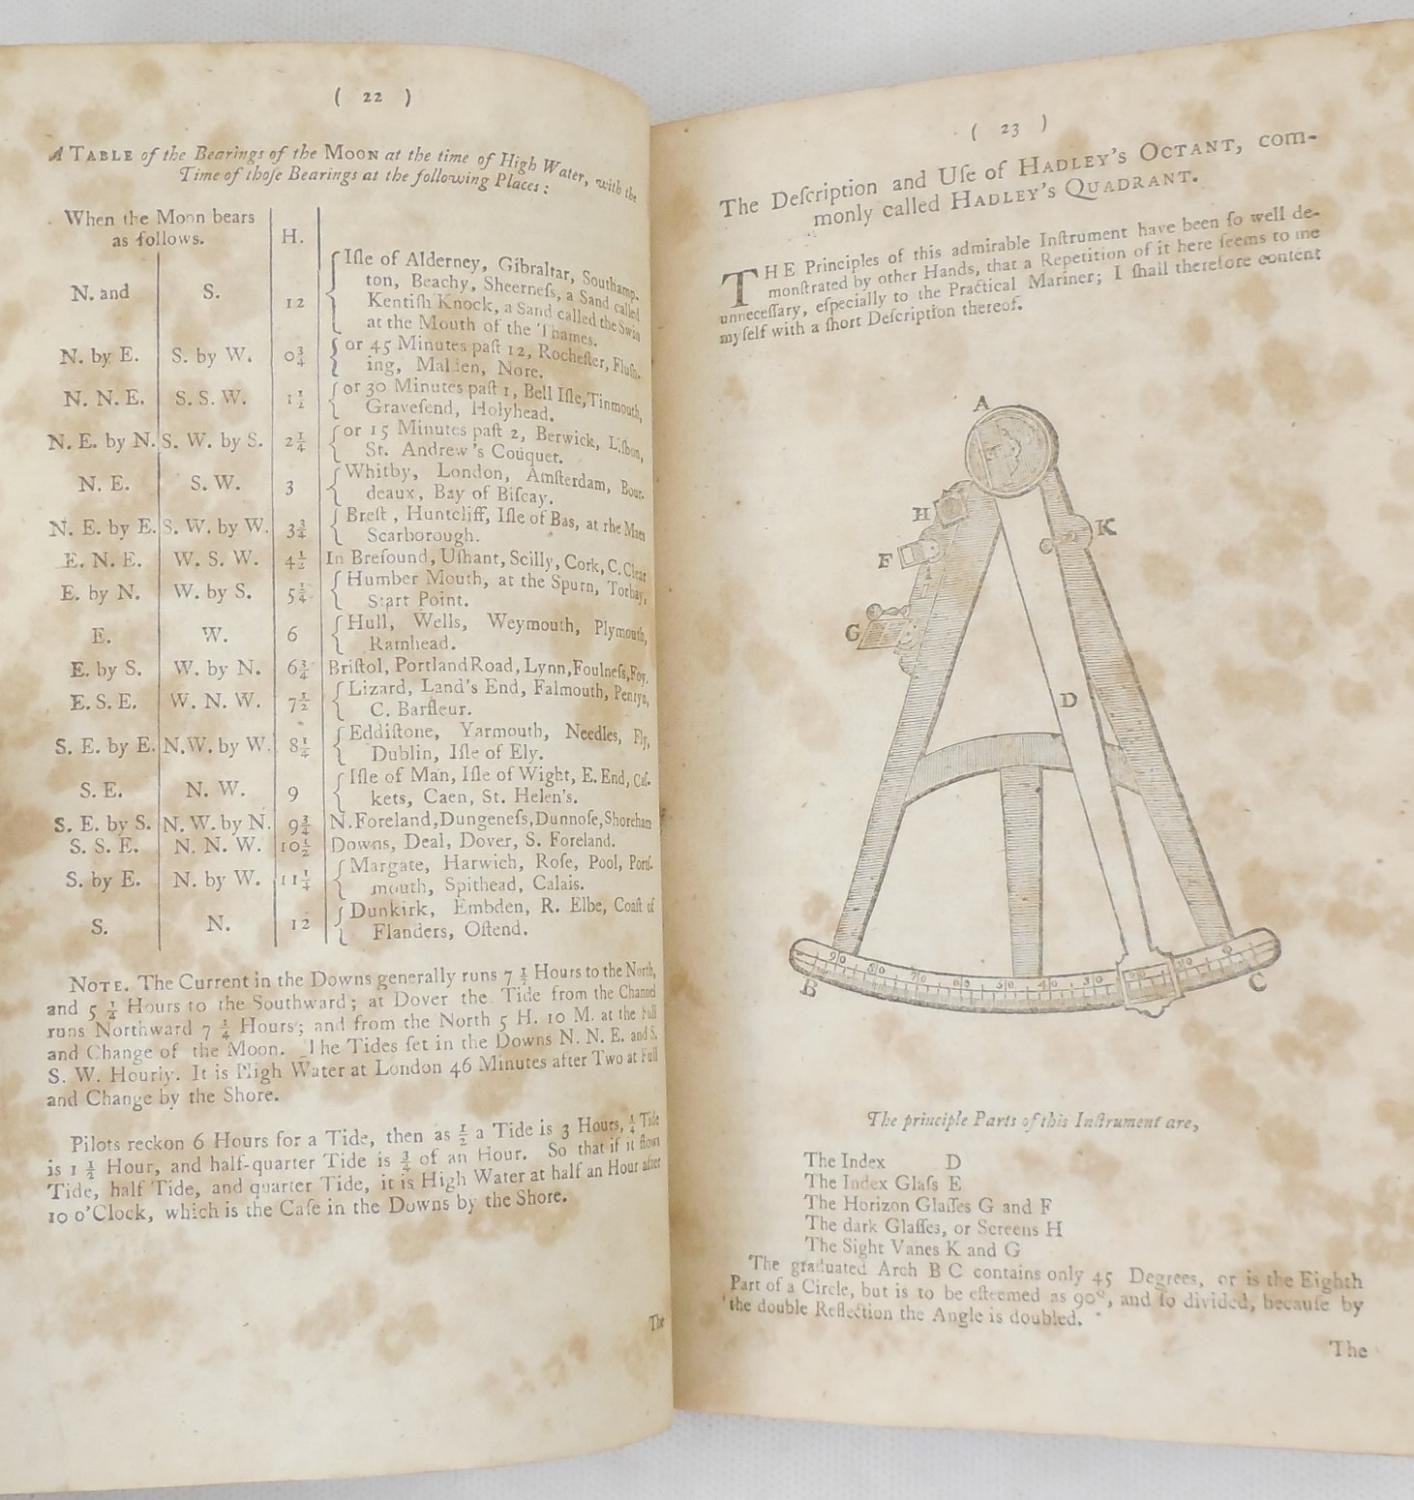 ( 22 )
A TABLE of the Bearings of the MOON at the time of High Water, with the
Time of thoſe Bearings at the following Places:
When the Moon bears
as follows.
H.
N. and S. 12
Iſle of Alderney, Gibraltar, Southamp-
ton, Beachy, Sheerneſs, a Sand called
Kentiſh Knock, a Sand called the Swin
at the Mouth of the Thames.
N. by E. S. by W. 0¾
or 45 Minutes paſt 12, Rocheſter, Fluſh-
ing, Nore.
N. N. E. S. S. W. 1½
or 30 Minutes paſt 1, Bell Iſle, Tinmouth,
Graveſend, Holyhead.
N. E. by N. S. W. by S. 2¼
or 15 Minutes paſt 2, Berwick, Liſbon,
St. Andrew's Couquet.
N. E. S. W. 3
Whitby, London, Amſterdam, Bour-
deaux, Bay of Biſcay.
N. E. by E. S. W. by W. 3¾
Breſt, Huntcliff, Iſle of Bas, at the Maes
Scarborough.
E. N. E. W. S. W. 4½ In Breſound, Uſhant, Scilly, Cork, C. Clear
E. by N. W. by S. 5¼
Humber Mouth, at the Spurn, Torbay,
Start Point.
E. W. 6
Hull, Wells, Weymouth, Plymouth,
Ramhead.
E. by S. W. by N. 6¾ Briſtol, Portland Road, Lynn, Foulneſs, Foy.
E. S. E. W. N. W. 7½
Lizard, Land's End, Falmouth, Penryn,
C. Barfleur.
S. E. by E. N. W. by W. 8¼
Eddiſtone, Yarmouth, Needles, Fly,
Dublin, Iſle of Ely.
S. E. N. W. 9
Iſle of Man, Iſle of Wight, E. End, Caſ-
kets, Caen, St. Helen's.
S. E. by S. N. W. by N. 9¾ N. Foreland, Dungeneſs, Dunnoſe, Shoreham
S. S. E. N. N. W. 10½ Downs, Deal, Dover, S. Foreland.
S. by E. N. by W. 11¼
Margate, Harwich, Roſe, Pool, Portſ-
mouth, Spithead, Calais.
S. N. 12
Dunkirk, Embden, R. Elbe, Coaſt of
Flanders, Oſtend.
NOTE. The Current in the Downs generally runs 7 ½ Hours to the North,
and 5 ½ Hours to the Southward; at Dover the Tide from the Channel
runs Northward 7 ¼ Hours; and from the North 5 H. 10 M. at the Full
and Change of the Moon. The Tides ſet in the Downs N. N. E. and S.
S. W. Hourly. It is High Water at London 46 Minutes after Two at Full
and Change by the Shore.
Pilots reckon 6 Hours for a Tide, then as ½ a Tide is 3 Hours, ¼ Tide
is 1 ½ Hour, and half-quarter Tide is ¾ of an Hour. So that if it flows
Tide, half Tide, and quarter Tide, it is High Water at half an Hour after
10 o'Clock, which is the Caſe in the Downs by the Shore.
The
( 23 )
The Deſcription and Uſe of HADLEY'S OCTANT, com-
monly called HADLEY'S QUADRANT.
THE Principles of this admirable Inſtrument have been ſo well de-
monſtrated by other Hands, that a Repetition of it here ſeems to me
unneceſſary, eſpecially to the Practical Mariner; I ſhall therefore content
myſelf with a ſhort Deſcription thereof.
A
H
K
F
G
D
90 80 70 60 50 40 30
B
C
The principle Parts of this Inſtrument are,
The Index D
The Index Glaſs E
The Horizon Glaſſes G and F
The dark Glaſſes, or Screens H
The Sight Vanes K and G
The graduated Arch B C contains only 45 Degrees, or is the Eighth
Part of a Circle, but is to be eſteemed as 90°, and ſo divided, becauſe by
the double Reflection the Angle is doubled.
The